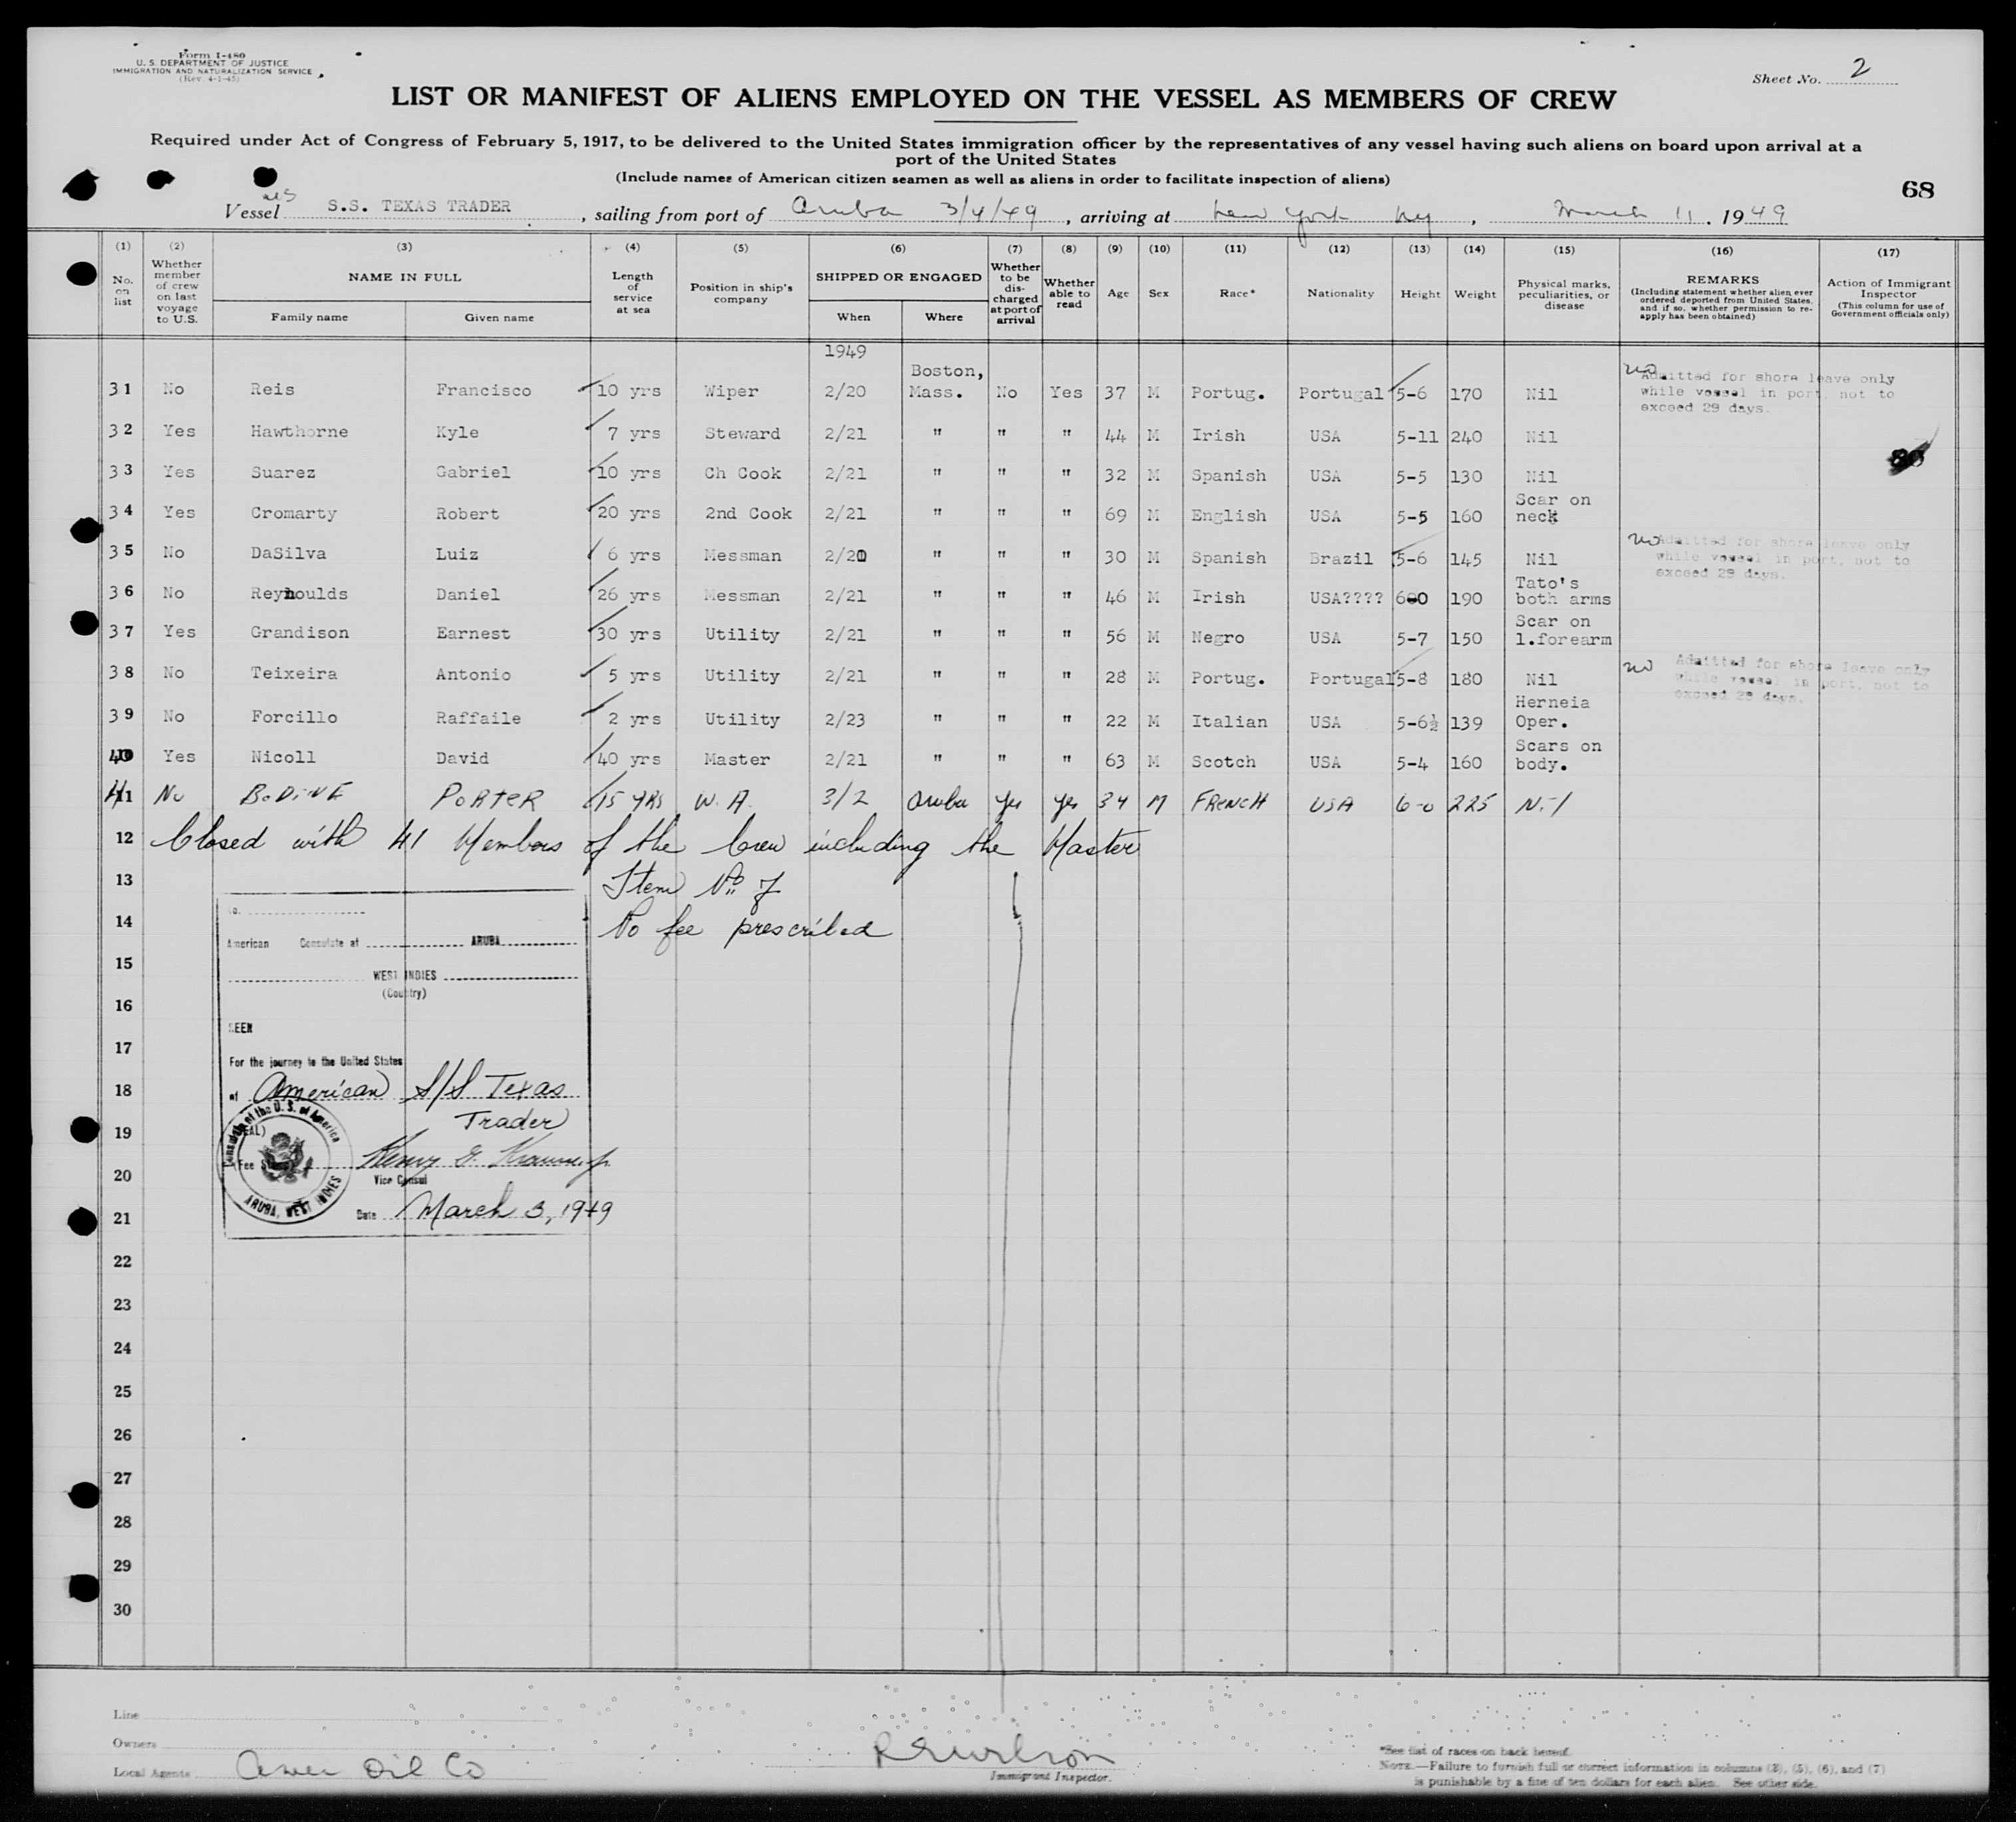 Form I-480
U. S. DEPARTMENT OF JUSTICE
IMMIGRATION AND NATURALIZATION SERVICE
(Rev. 4-1-45)
Sheet No. 2
LIST OR MANIFEST OF ALIENS EMPLOYED ON THE VESSEL AS MEMBERS OF CREW
Required under Act of Congress of February 5, 1917, to be delivered to the United States immigration officer by the representatives of any vessel having such aliens on board upon arrival at a
port of the United States
(Include names of American citizen seamen as well as aliens in order to facilitate inspection of aliens)
68
Vessel S.S. TEXAS TRADER, sailing from port of Aruba 3/4/49, arriving at New York NY, March 11, 1949
(1) (2) (3) (4) (5) (6) (7) (8) (9) (10) (11) (12) (13) (14) (15) (16) (17)
No. on list
Whether member of crew on last voyage to U.S.
NAME IN FULL
Family name Given name
Length of service at sea
Position in ship's company
SHIPPED OR ENGAGED
When Where
Whether to be discharged at port of arrival
Whether able to read
Age
Sex
Race*
Nationality
Height
Weight
Physical marks, peculiarities, or disease
REMARKS
(Including statement whether alien ever ordered deported from United States, and if so, whether permission to re-apply has been obtained)
Action of Immigrant Inspector
(This column for use of Government officials only)
1949
31 No Reis Francisco 10 yrs Wiper 2/20 Boston, Mass. No Yes 37 M Portug. Portugal 5-6 170 Nil no Admitted for shore leave only while vessel in port, not to exceed 29 days.
32 Yes Hawthorne Kyle 7 yrs Steward 2/21 " " " 44 M Irish USA 5-11 240 Nil
33 Yes Suarez Gabriel 10 yrs Ch Cook 2/21 " " " 32 M Spanish USA 5-5 130 Nil
34 Yes Cromarty Robert 20 yrs 2nd Cook 2/21 " " " 69 M English USA 5-5 160 Scar on neck
35 No DaSilva Luiz 6 yrs Messman 2/20 " " " 30 M Spanish Brazil 5-6 145 Nil no Admitted for shore leave only while vessel in port, not to exceed 29 days.
36 No Reynoulds Daniel 26 yrs Messman 2/21 " " " 46 M Irish USA???? 6-0 190 Tato's both arms
37 Yes Grandison Earnest 30 yrs Utility 2/21 " " " 56 M Negro USA 5-7 150 Scar on l.forearm
38 No Teixeira Antonio 5 yrs Utility 2/21 " " " 28 M Portug. Portugal 5-8 180 Nil no Admitted for shore leave only while vessel in port, not to exceed 29 days.
39 No Forcillo Raffaile 2 yrs Utility 2/23 " " " 22 M Italian USA 5-6½ 139 Herneia Oper.
40 Yes Nicoll David 40 yrs Master 2/21 " " " 63 M Scotch USA 5-4 160 Scars on body.
41 No BODINE PORTER 15 YRS W.A. 3/2 Aruba Yes Yes 34 M FRENCH USA 6-0 225 Nil
12 Closed with 41 Members of the Crew including the Master
13 Item No. 7
14 No fee prescribed
15
16
17
18
19
20
21
22
23
24
25
26
27
28
29
30
No.
American Consulate at ARUBA
WEST INDIES
(Country)
SEEN
For the journey to the United States
of American S/S Texas
Trader
(SEAL)
(Fee Stamp)
Consulate of the U. S. of America
ARUBA, WEST INDIES
Vice Consul
Date March 3, 1949
Line
Owners
Local Agents Amer Oil Co
Immigrant Inspector.
*See list of races on back hereof.
NOTE.—Failure to furnish full or correct information in columns (3), (5), (6), and (7)
is punishable by a fine of ten dollars for each alien. See other side.